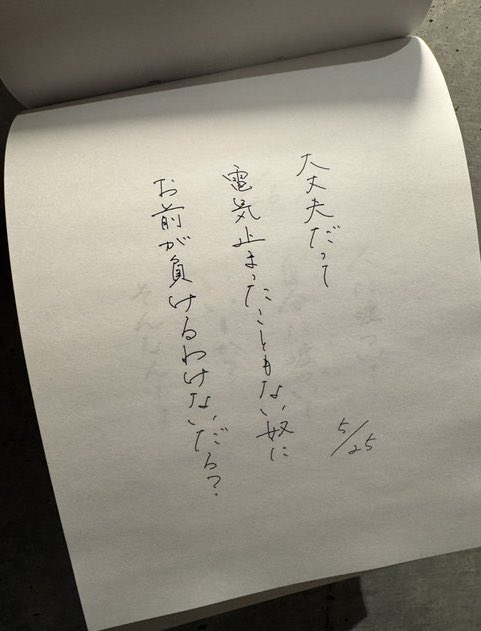 大丈夫だって
電気止まったこともない奴に
お前が負けるわけないだろ?
5/25